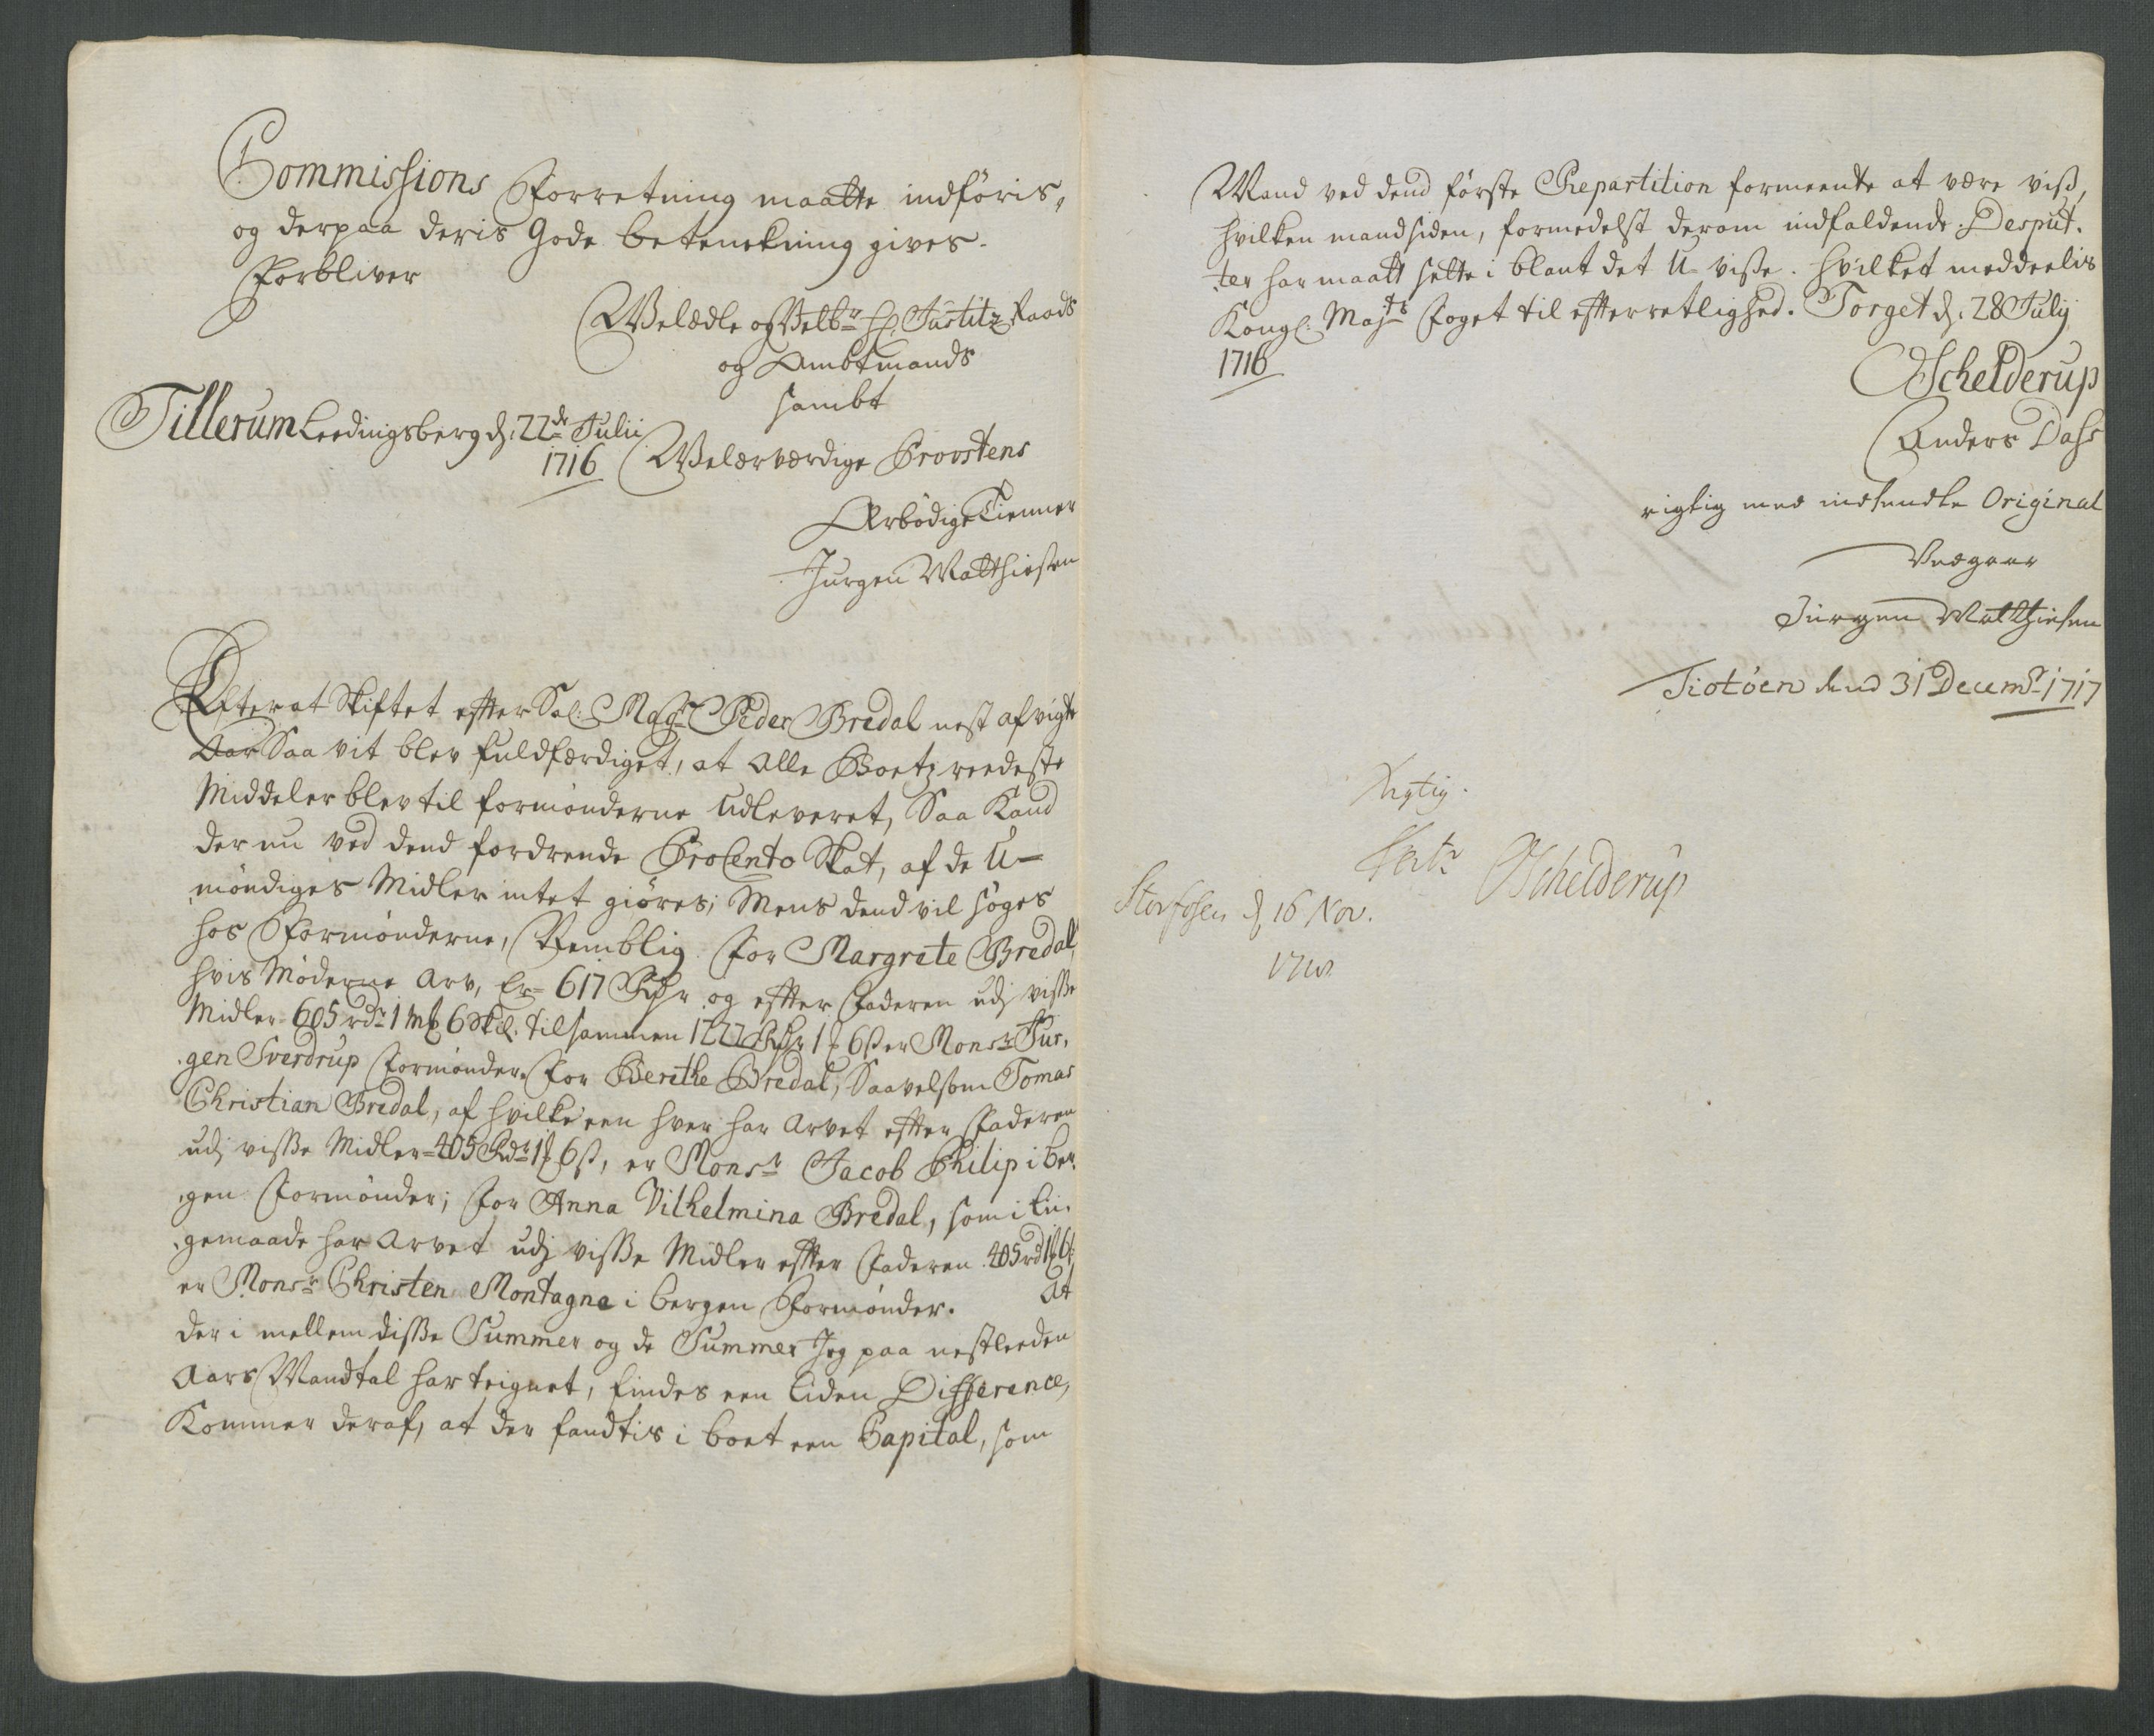 Commissions Forretning maatte indføris,
og derpaa deris Gode betenckning gives.
Forbliver
Welædle og Welb:r H: Justitz Raads
og Ambtmands
sambt
Tillerum Leedingsberg d: 22de Julii
1716
Welærværdige Provstens
Ærbødige Tienner
Jurgen Matthiesen
Efter at Skiftet efter Sal: Mag:r Peder Bredal nest afvigte
Aar Saa vit blev fuldfærdiget, at alle Boetz reedeste
Middeler blev til formønderne udleveret, Saa Kand
der nu ved dend fordrende ProCento Skat, af de U-
møndiges Midler intet giøres; Mens dend vil søges
hos Formønderne, Nemblig for Margrete Bredal,
hvis Møderne Arv, Er 617 Rdr og efter Faderen udj visse
Midler 605 rdr 1 mk 6 Skil: tilsammen 1222 Rdr 1 mk 6 s er Monsr Jur-
gen Sverdrup Formønder. For Berethe Bredal, Saavelsom Tomas
Christian Bredal, af hvilke een hver har Arvet efter Faderen
udj visse Midler 405 Rdr 1 mk 6 s, er Monsr Jacob Philip i Ber-
gen Formønder; For Anna Vilhelmina Bredal, som i lii-
gemaade har Arvet udj visse Midler efter Faderen 405 rd 1 mk 6 s
er Monsr Christen Montagne i Bergen Formønder. At
der i mellem disse Summer og de Summer Jeg paa nestleeden
Aars Mandtal har teignet, findes een liden Difference,
Kommer deraf, at der fandtis i boet een Capital, som
Mand ved dend første Repartition formeente at være viss,
hvilken mand siden, formedelst derom indfaldende Desput-
ter har maatt sette i blant det U-visse. Hvilket meddeelis
Kongl: Majts Foget til efterretlighed. Torget d: 28 Julij
1716
Schelderup
Anders Dass
rigtig med indsendte Original
Vedgaar
Jürgen Matthiesen
Tiotøen dend 31 Decembr 1717
Rigtig.
Schelderup
Storfosen d 16 Nov.